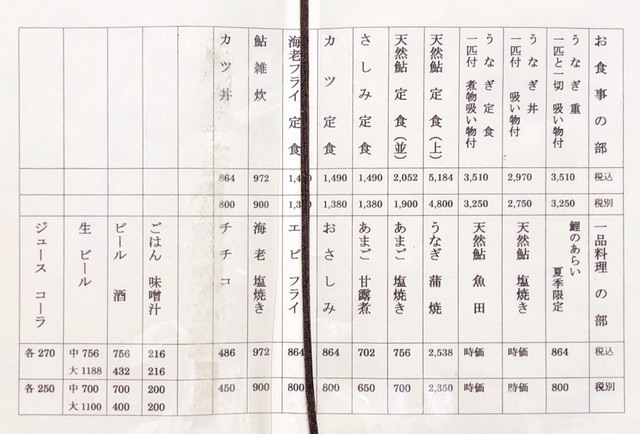 お食事の部 税込 税別
うなぎ重 一匹と一切 吸い物付 3,510 3,250
うなぎ丼 一匹付 吸い物付 2,970 2,750
うなぎ定食 一匹付 煮物吸い物付 3,510 3,250
天然鮎 定食(上) 5,184 4,800
天然鮎 定食(並) 2,052 1,900
さしみ定食 1,490 1,380
カツ 定食 1,490 1,380
海老フライ定食
鮎雑炊 972 900
カツ丼 864 800
一品料理の部 税込 税別
鯉のあらい 夏季限定 864 800
天然鮎 塩焼き 時価 時価
天然鮎 魚田 時価 時価
うなぎ 蒲焼 2,538 2,350
あまご 塩焼き 756 700
あまご 甘露煮 702 650
おさしみ 864 800
エビフライ 864 800
海老 塩焼き 972 900
チチコ 486 450
ごはん 味噌汁 216 216 200 200
ビール 酒 756 432 700 400
生ビール 中756 大1188 中700 大1100
ジュース コーラ 各270 各250